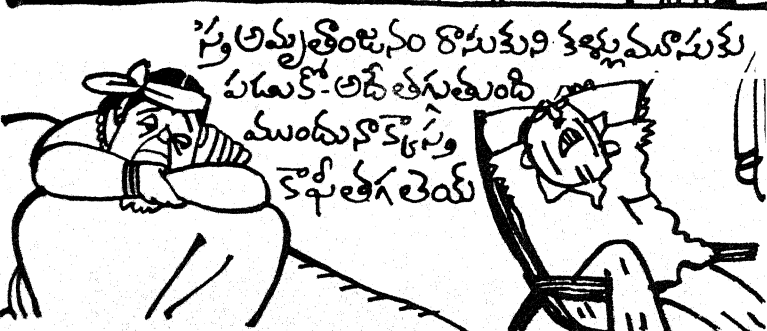 'స్త అమృతాంజనం రాసుకుని కళ్లుమూసుకు
పడుకో-అదే తగ్గుతుంది
ముందునాక్కాస్త
కాఫీతగలెయ్